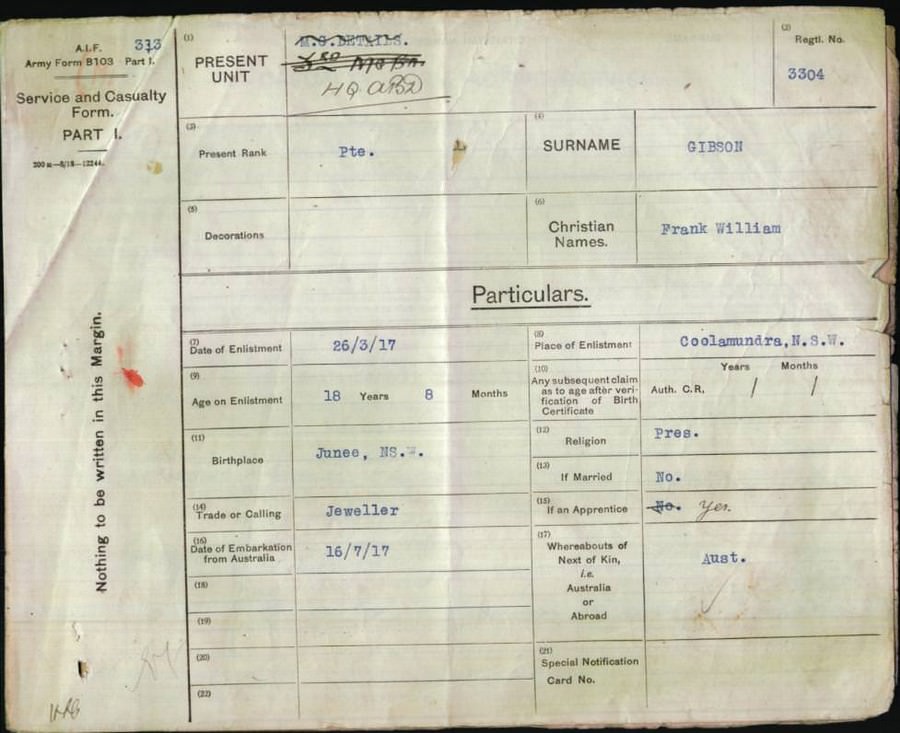 A.I.F. 313
Army Form B103 Part I.
Service and Casualty
Form.
PART I.
200 m—8/18—12244.
Nothing to be written in this Margin.
(1)
PRESENT
UNIT
M.G.DETAILS.
3RD
HQ ABD
(2)
Regtl. No.
3304
(3)
Present Rank
Pte.
(4)
SURNAME
GIBSON
(5)
Decorations
(6)
Christian
Names.
Frank William
Particulars.
(7)
Date of Enlistment
26/3/17
(8)
Place of Enlistment
Coolamundra,N.S.W.
(9)
Age on Enlistment
18 Years 8 Months
(10)
Any subsequent claim
as to age after veri-
fication of Birth
Certificate
Years Months
Auth. C.R, / /
(11)
Birthplace
Junee, NS.W.
(12)
Religion
Pres.
(13)
If Married
No.
(14)
Trade or Calling
Jeweller
(15)
If an Apprentice
No. Yes.
(16)
Date of Embarkation
from Australia
16/7/17
(17)
Whereabouts of
Next of Kin,
i.e.
Australia
or
Abroad
Aust.
(18)
(19)
(20)
(21)
Special Notification
Card No.
(22)